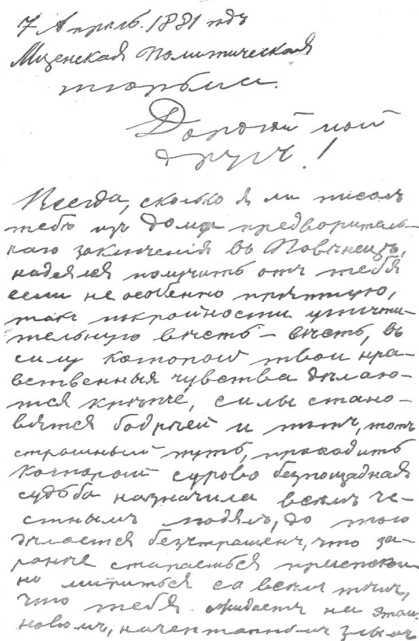 7 Апрѣль. 1881 годъ
Мценская Политическая
тюрьма.
Дорогой мой
другъ!
Всегда, сколько я ли писалъ
тебѣ изъ дома предворитель-
наго заключенія въ Повѣнецъ,
надѣялся получить отъ тебя
если не особенно пріятную,
такъ покрайности утѣши-
тельную вѣсть – вѣсть, въ
силу которой твои нра-
вственныя чувства дѣлаю-
тся крѣпче, силы стано-
вятся бодрѣй и путь, тотъ
страшный путь, проходить
который сурово безпощадная
судьба назначила всѣмъ че-
стнымъ людямъ, до того
дѣлается безстрашенъ, что за-
ранѣе стараешься
но мириться со всѣмъ тѣмъ,
что тебя ожидаетъ на этомъ
новомъ,